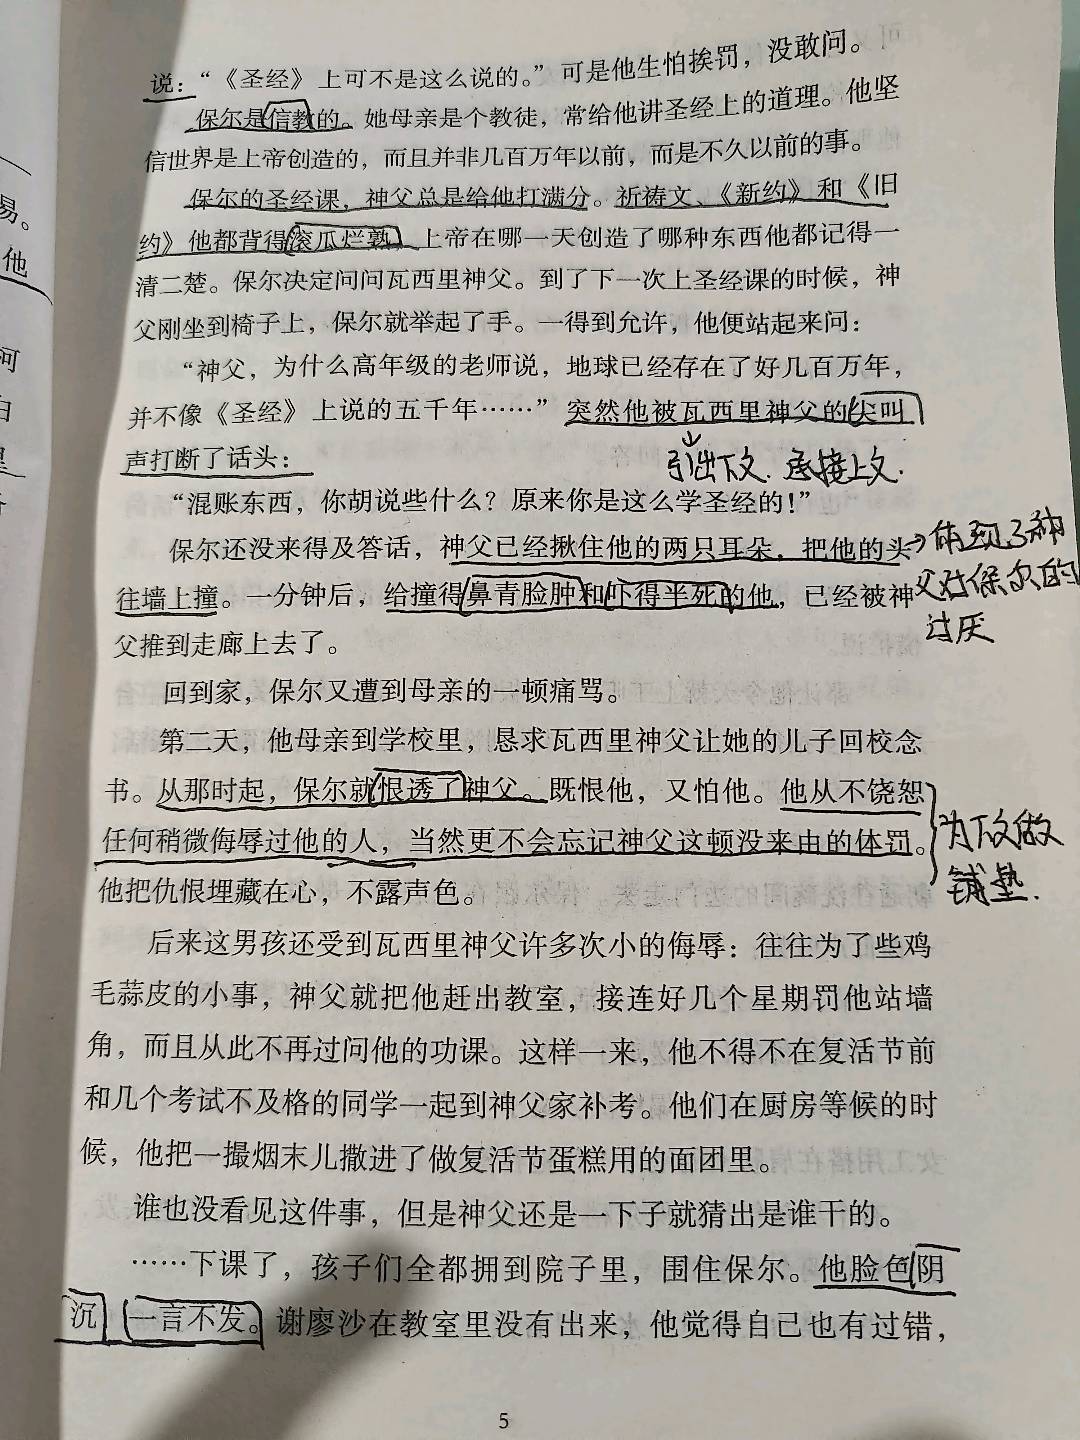 说：“《圣经》上可不是这么说的。”可是他生怕挨罚，没敢问。
保尔是信教的。她母亲是个教徒，常给他讲圣经上的道理。他坚
信世界是上帝创造的，而且并非几百万年以前，而是不久以前的事。
保尔的圣经课，神父总是给他打满分。祈祷文、《新约》和《旧
约》他都背得滚瓜烂熟。上帝在哪一天创造了哪种东西他都记得一
清二楚。保尔决定问问瓦西里神父。到了下一次上圣经课的时候，神
父刚坐到椅子上，保尔就举起了手。一得到允许，他便站起来问：
“神父，为什么高年级的老师说，地球已经存在了好几百万年，
并不像《圣经》上说的五千年……”突然他被瓦西里神父的尖叫
声打断了话头：
引出下文．承接上文．
“混账东西，你胡说些什么？原来你是这么学圣经的！”
保尔还没来得及答话，神父已经揪住他的两只耳朵，把他的头
往墙上撞。一分钟后，给撞得鼻青脸肿和吓得半死的他，已经被神
父推到走廊上去了。
体现了神
父对保尔的
过厌
回到家，保尔又遭到母亲的一顿痛骂。
第二天，他母亲到学校里，恳求瓦西里神父让她的儿子回校念
书。从那时起，保尔就恨透了神父。既恨他，又怕他。他从不饶恕
任何稍微侮辱过他的人，当然更不会忘记神父这顿没来由的体罚。
他把仇恨埋藏在心，不露声色。
为下文做
铺垫．
后来这男孩还受到瓦西里神父许多次小的侮辱：往往为了些鸡
毛蒜皮的小事，神父就把他赶出教室，接连好几个星期罚他站墙
角，而且从此不再过问他的功课。这样一来，他不得不在复活节前
和几个考试不及格的同学一起到神父家补考。他们在厨房等候的时
候，他把一撮烟末儿撒进了做复活节蛋糕用的面团里。
谁也没看见这件事，但是神父还是一下子就猜出是谁干的。
……下课了，孩子们全都拥到院子里，围住保尔。他脸色阴
沉，一言不发。谢廖沙在教室里没有出来，他觉得自己也有过错，
5
易。
他
河